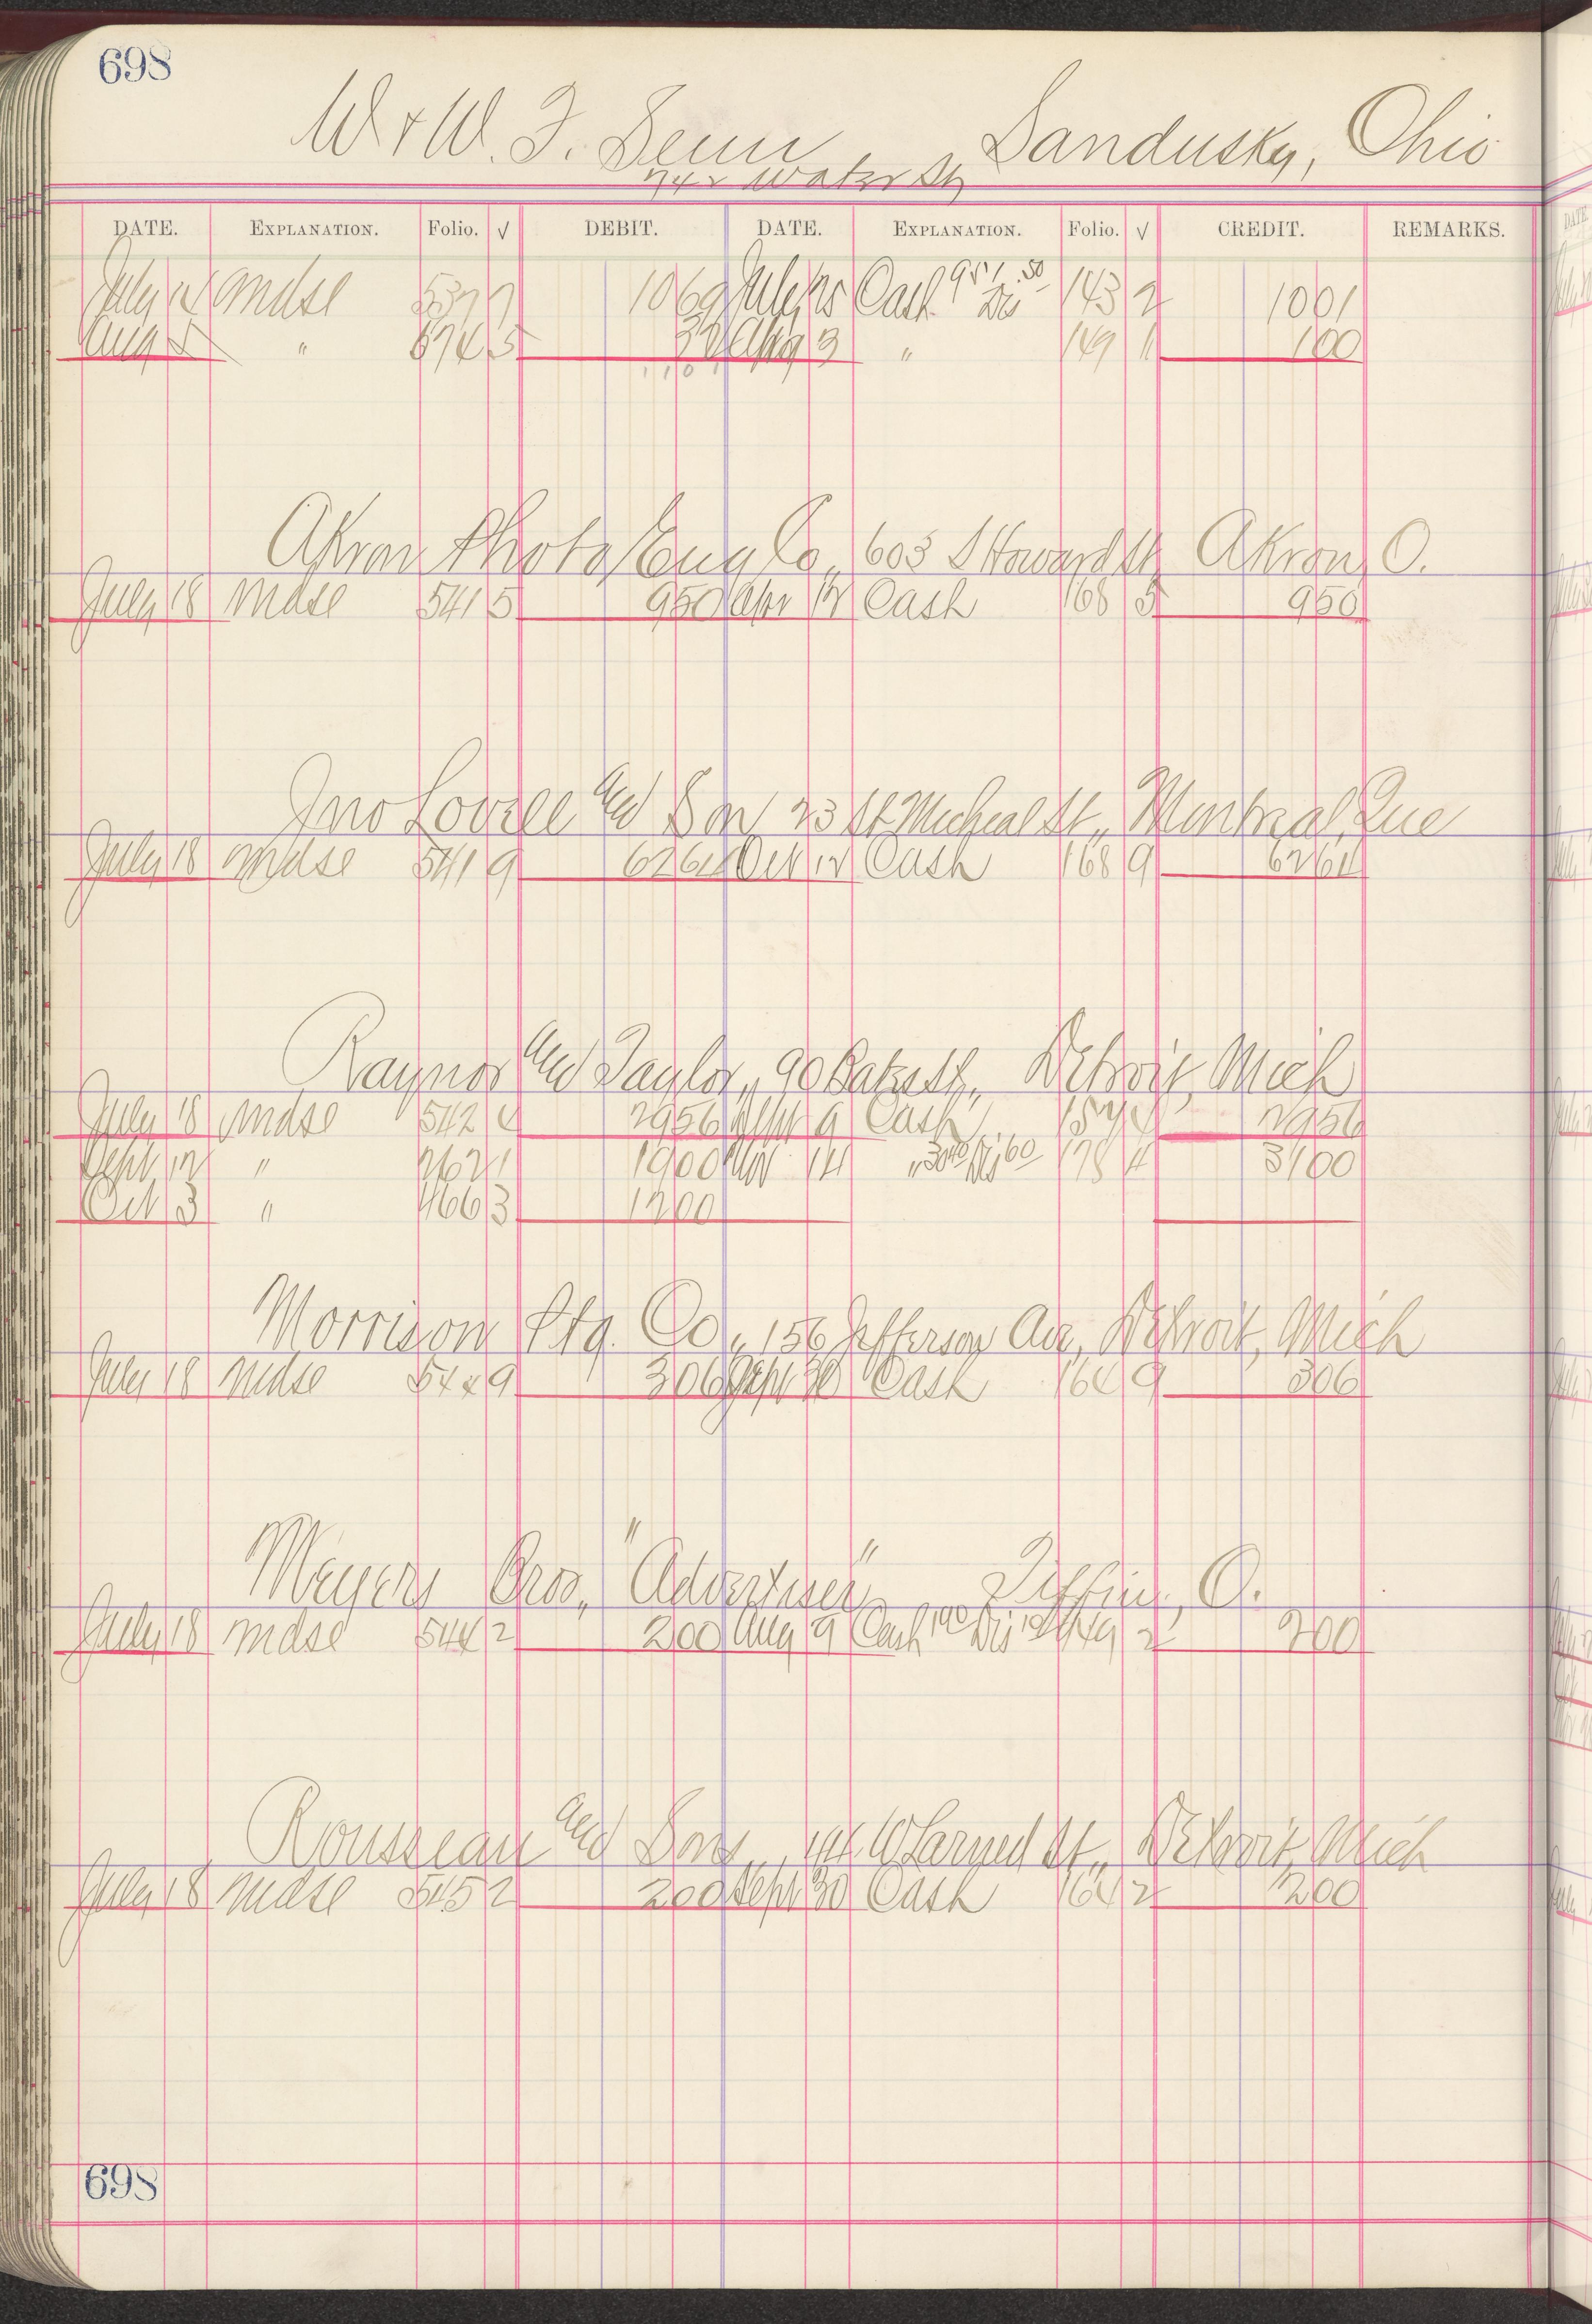 698
W & W. F. Senn Sandusky, Ohio
Water St
DATE. EXPLANATION. Folio. √ DEBIT. DATE. EXPLANATION. Folio. √ CREDIT. REMARKS.
July 14 Mdse 537 7 1069 July 25 Cash 951 Dis 50 143 2 1001
Aug 5 " 674 5 32 Aug 3 " 149 1 100
1101
Akron Photo Eng Co, 603 S Howard St Akron, O.
July 18 Mdse 541 5 950 12 Cash 168 5 950
Jno Lovell and Son 23 St Micheal St., Montreal, Que
July 18 Mdse 541 9 6264 Oct 12 Cash 168 9 6264
Raynor and Taylor, 90 Bates St., Detroit, Mich
July 18 Mdse 542 4 2956 9 Cash 157 4 2956
Sept 12 " 262 1 1900 Nov 14 " 3040 Dis 60 178 4 3100
Oct 3 " 466 3 1200
Morrison Ptg. Co., 156 Jefferson Ave, Detroit, Mich
July 18 Mdse 544 9 306 Sept 30 Cash 164 9 306
Meyers Bros, "Advertiser" Tiffin, O.
July 18 Mdse 544 2 200 Aug 9 Cash 190 Dis 10 149 2 200
Rousseau and Sons, 44 W Larned St., Detroit, Mich
July 18 Mdse 545 2 200 Sept 30 Cash 164 2 200
698